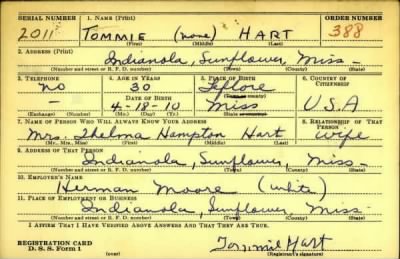 SERIAL NUMBER 1. NAME (Print) ORDER NUMBER
2011 TOMMIE (none) HART 388
(First) (Middle) (Last)
2. ADDRESS (Print)
Indianola, Sunflower, Miss-
(Number and street or R. F. D. number) (Town) (County) (State)
3. TELEPHONE 4. AGE IN YEARS 5. PLACE OF BIRTH 6. COUNTRY OF CITIZENSHIP
No 30 Leflore
DATE OF BIRTH (Town or county)
— 4-18-10 Miss U.S.A
(Exchange) (Number) (Mo.) (Day) (Yr.) (State or country)
7. NAME OF PERSON WHO WILL ALWAYS KNOW YOUR ADDRESS 8. RELATIONSHIP OF THAT PERSON
Mrs. Thelma Hampton Hart Wife
(Mr., Mrs., Miss) (First) (Middle) (Last)
9. ADDRESS OF THAT PERSON
Indianola, Sunflower, Miss-
(Number and street or R. F. D. number) (Town) (County) (State)
10. EMPLOYER'S NAME
Herman Moore (white)
11. PLACE OF EMPLOYMENT OR BUSINESS
Indianola, Sunflower, Miss-
(Number and street or R. F. D. number) (Town) (County) (State)
I AFFIRM THAT I HAVE VERIFIED ABOVE ANSWERS AND THAT THEY ARE TRUE.
REGISTRATION CARD
D. S. S. Form 1 (over) Tommie Hart
(Registrant's signature)